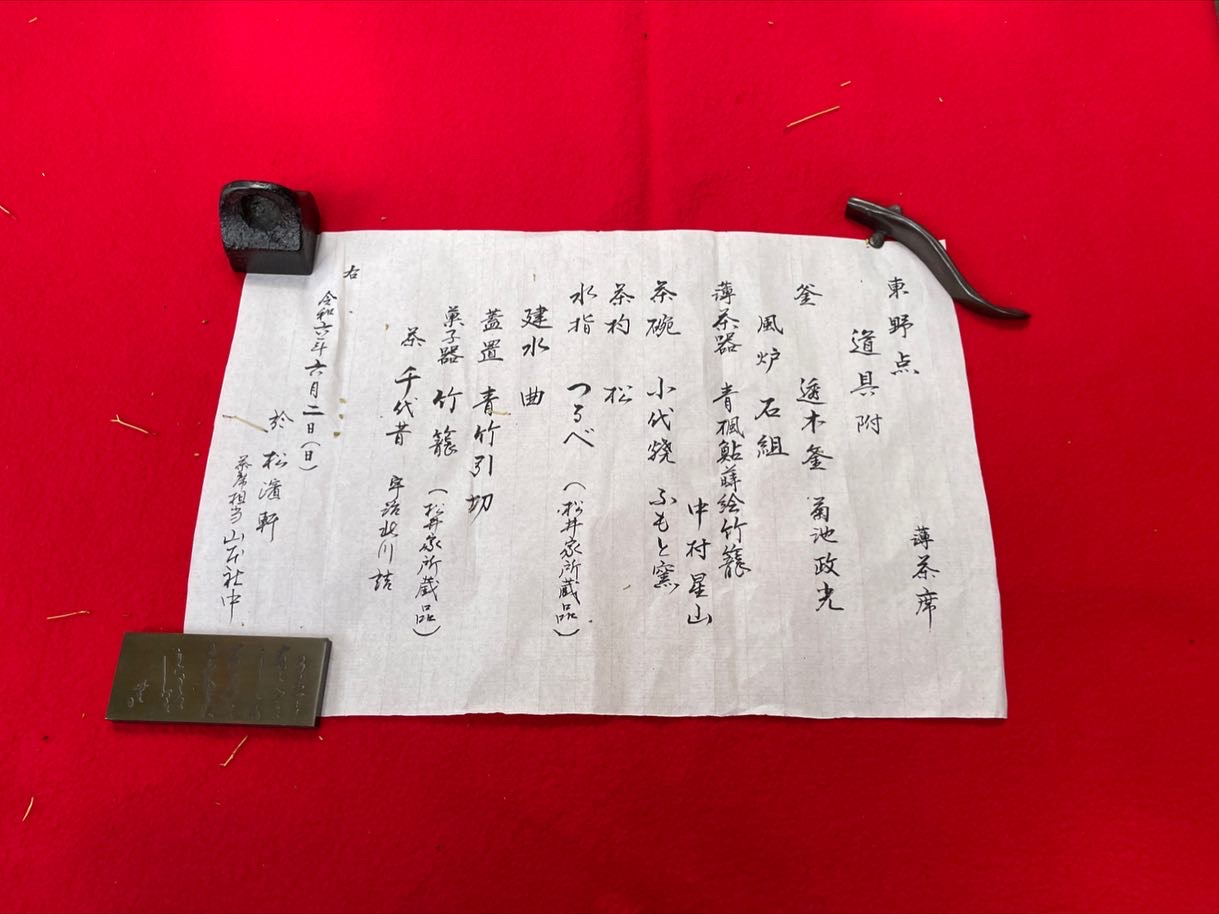 薄茶席
東野点
道具附
釜 透木釜 菊池政光
風炉 石組
薄茶器 青楓鮎蒔絵竹籠
中村星山
茶碗 小代焼 ふもと窯
茶杓 松
水指 つるべ (松井家所蔵品)
建水 曲
蓋置 青竹引切
菓子器 竹籠 (松井家所蔵品)
茶 千代昔 宇治北川詰
右
令和六年六月二日(日)
於 松濱軒
茶席担当 山本社中